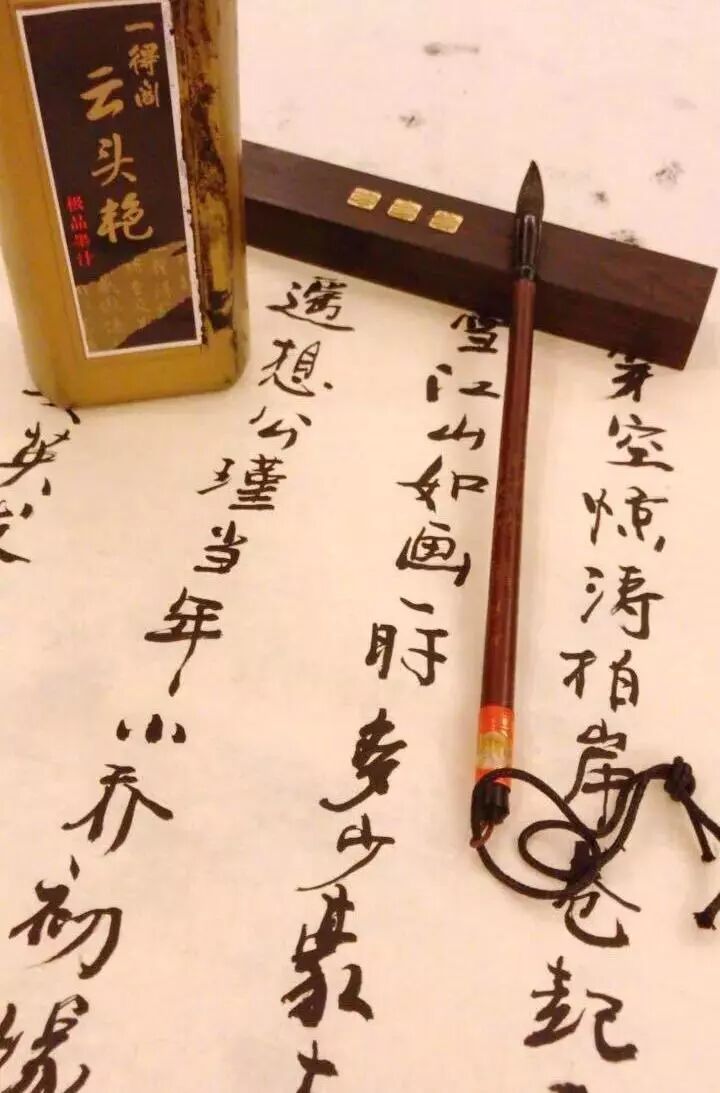 一得阁
云头艳
极品墨汁
穿空惊涛拍岸卷起
雪江山如画一时多少豪
遥想公瑾当年小乔初
英发